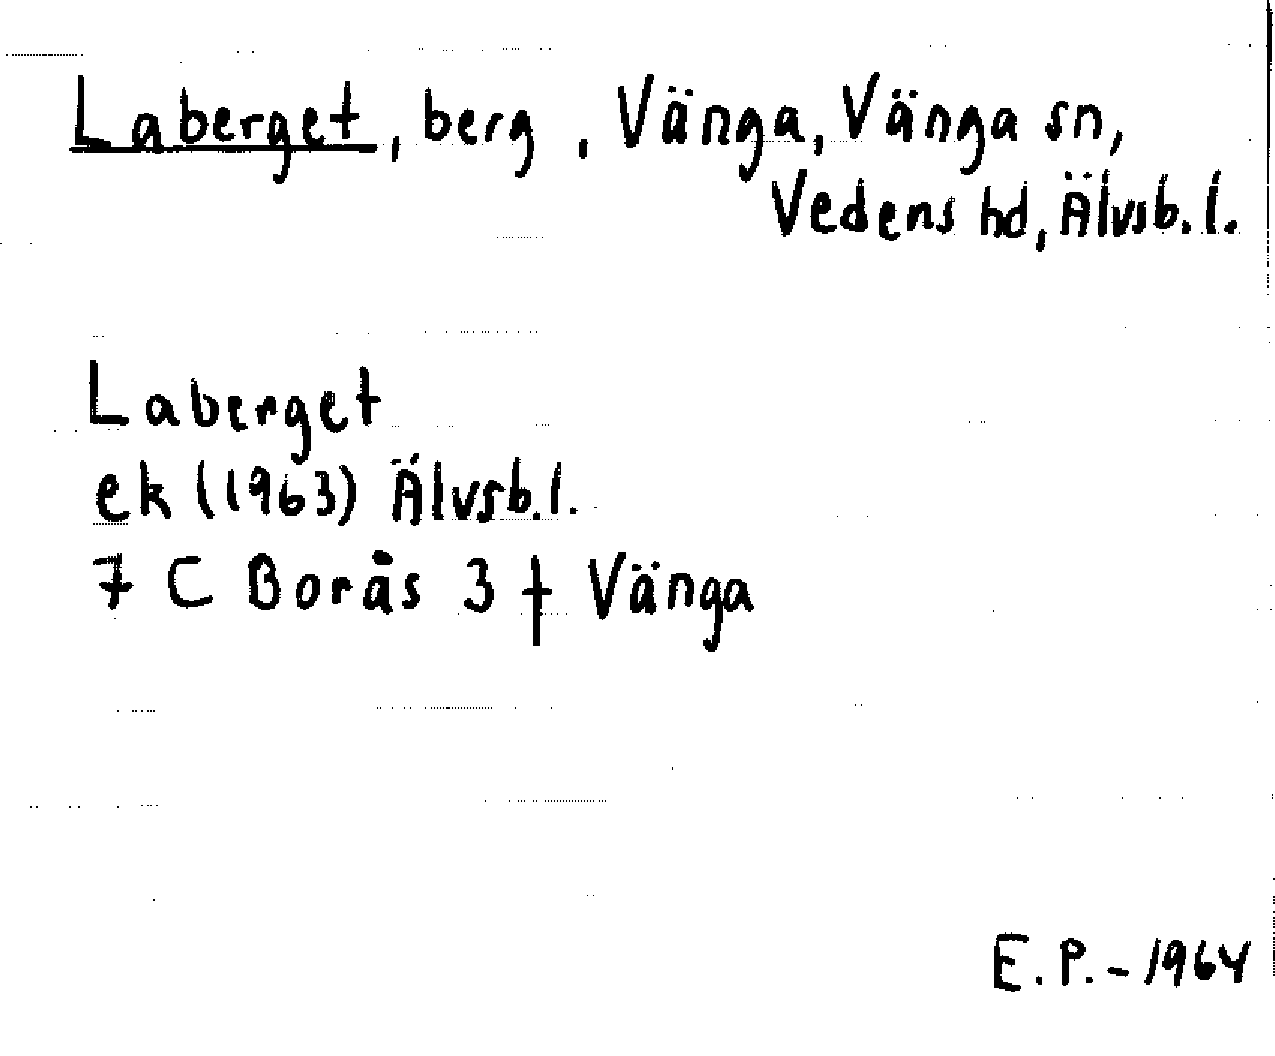 Laberget, berg, Vänga, Vänga sn,
Vedens hd, Älvsb. l.
Laberget
ek (1963) Älvsb. l.
7 C Borås 3 f Vänga
E. P. - 1964